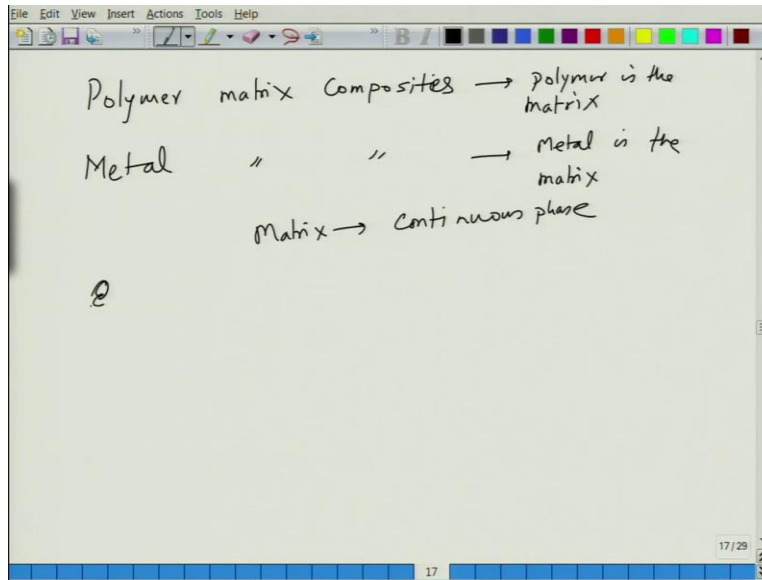 File Edit View Insert Actions Tools Help
Polymer matrix Composites → polymer is the
matrix
Metal " " → Metal is the
matrix
Matrix → Continuous phase
17/29
17